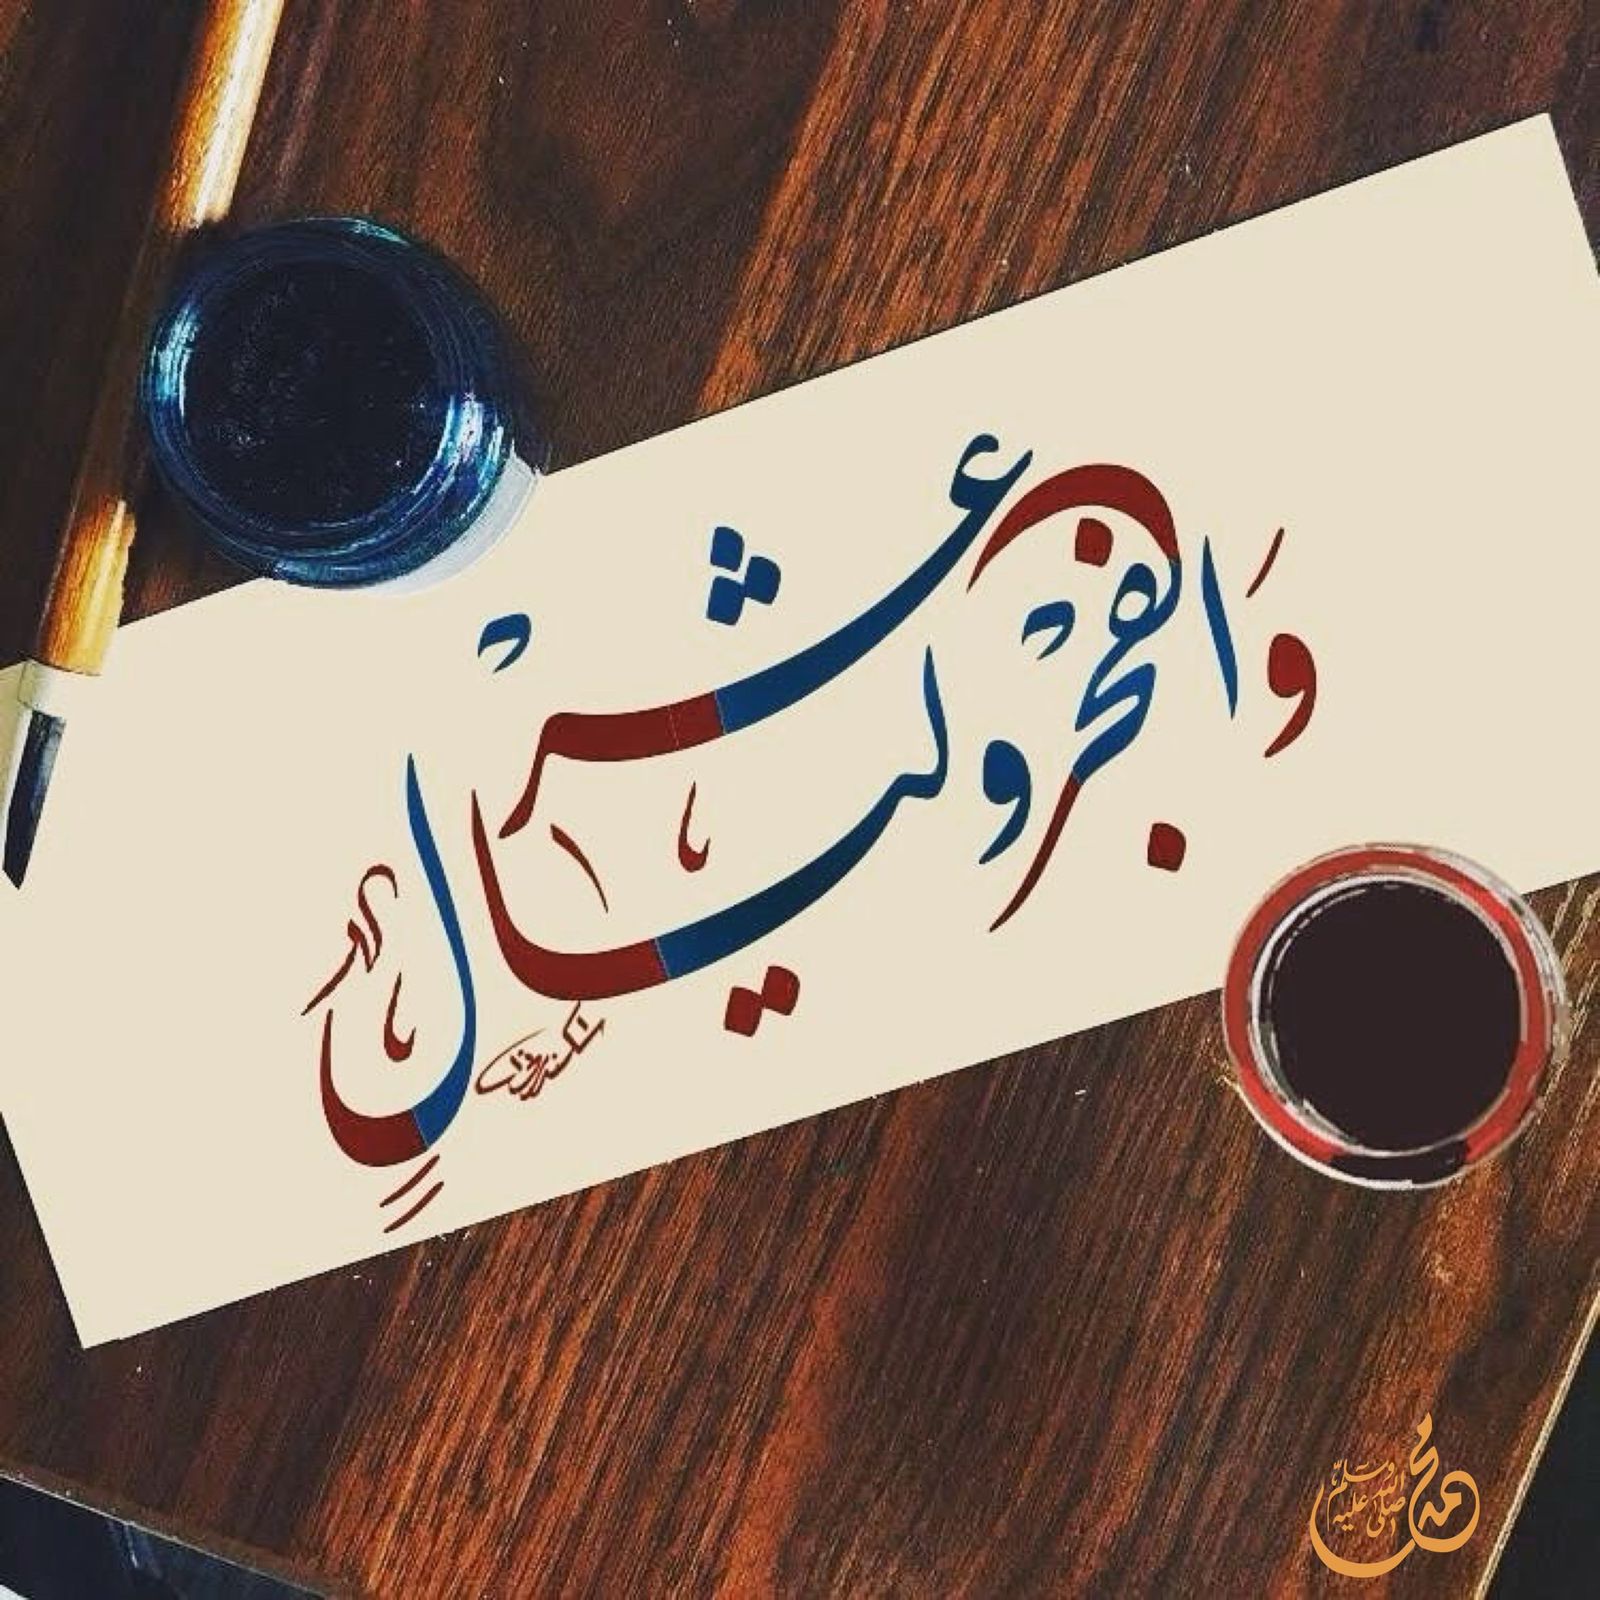 وَالفجرْ وليالٍ عشرْ
محمد صلى الله عليه وسلم